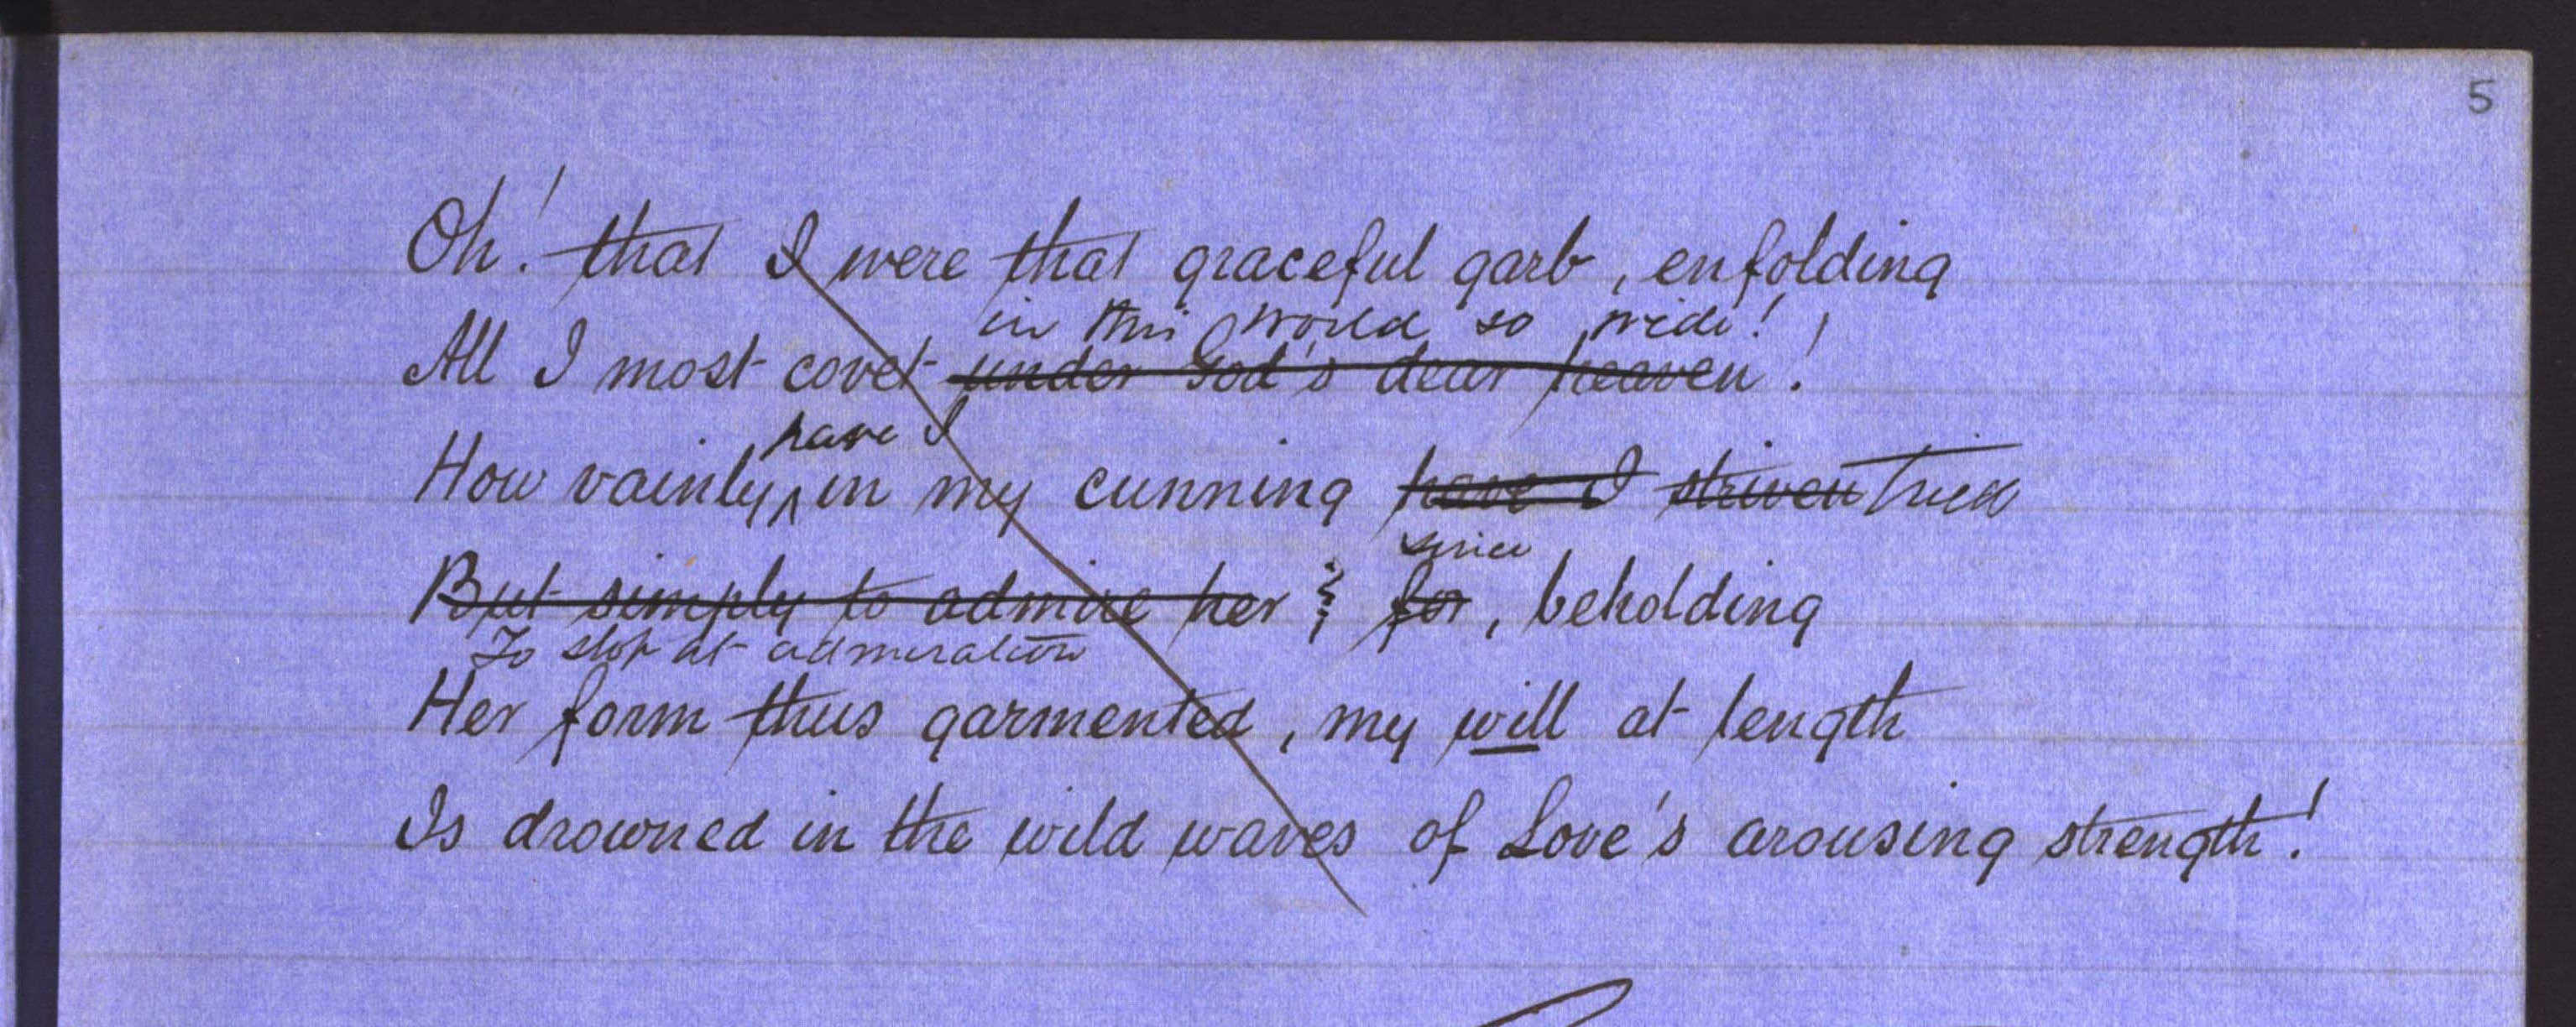 5
Oh! that I were that graceful garb, enfolding
in this world so wide!
All I most covet under God's dear heaven!
have I
How vainly, in my cunning have I striven tried
since
But simply to admire her & for, beholding
To stop at admiration
Her form thus garmented, my will at length
Is drowned in the wild waves of Love's arousing strength!